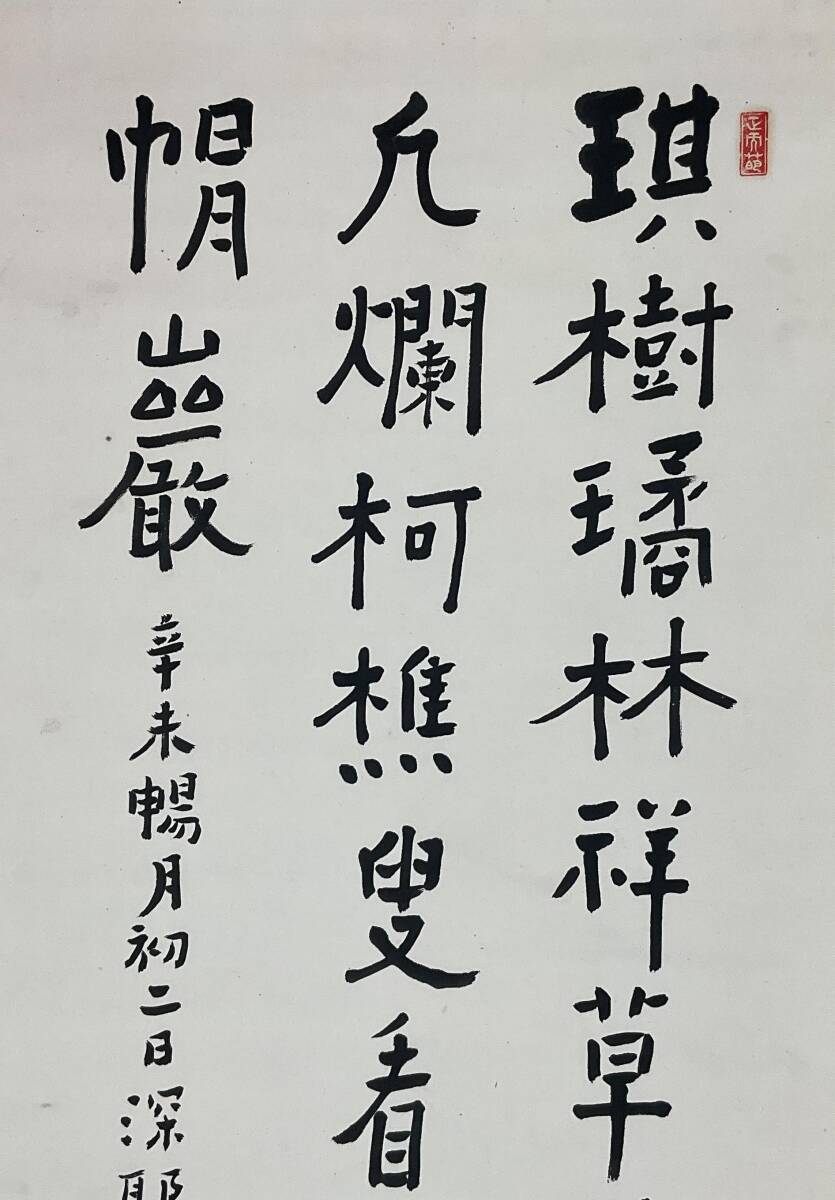 琪樹璚林祥草
爛柯樵叟看
帽巖
辛未暢月初二日深